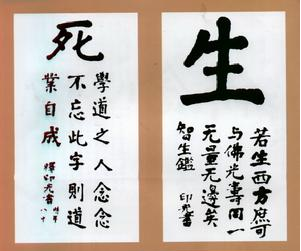 生
若生西方庶可
与佛光壽同一
无量无邊矣
智生鑑
印光書
死
學道之人念念
不忘此字則道
業自成
釋印光書
八十